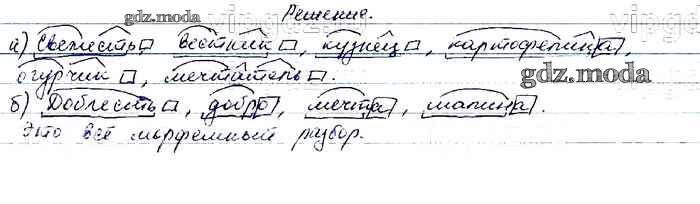 Решение.
а) Свежесть, вестник, кузнец, картофелина,
огурчик, мечтатель.
б) Доблесть, добро, мечта, малина.
Это всё морфемный разбор.
gdz.moda
gdz.moda